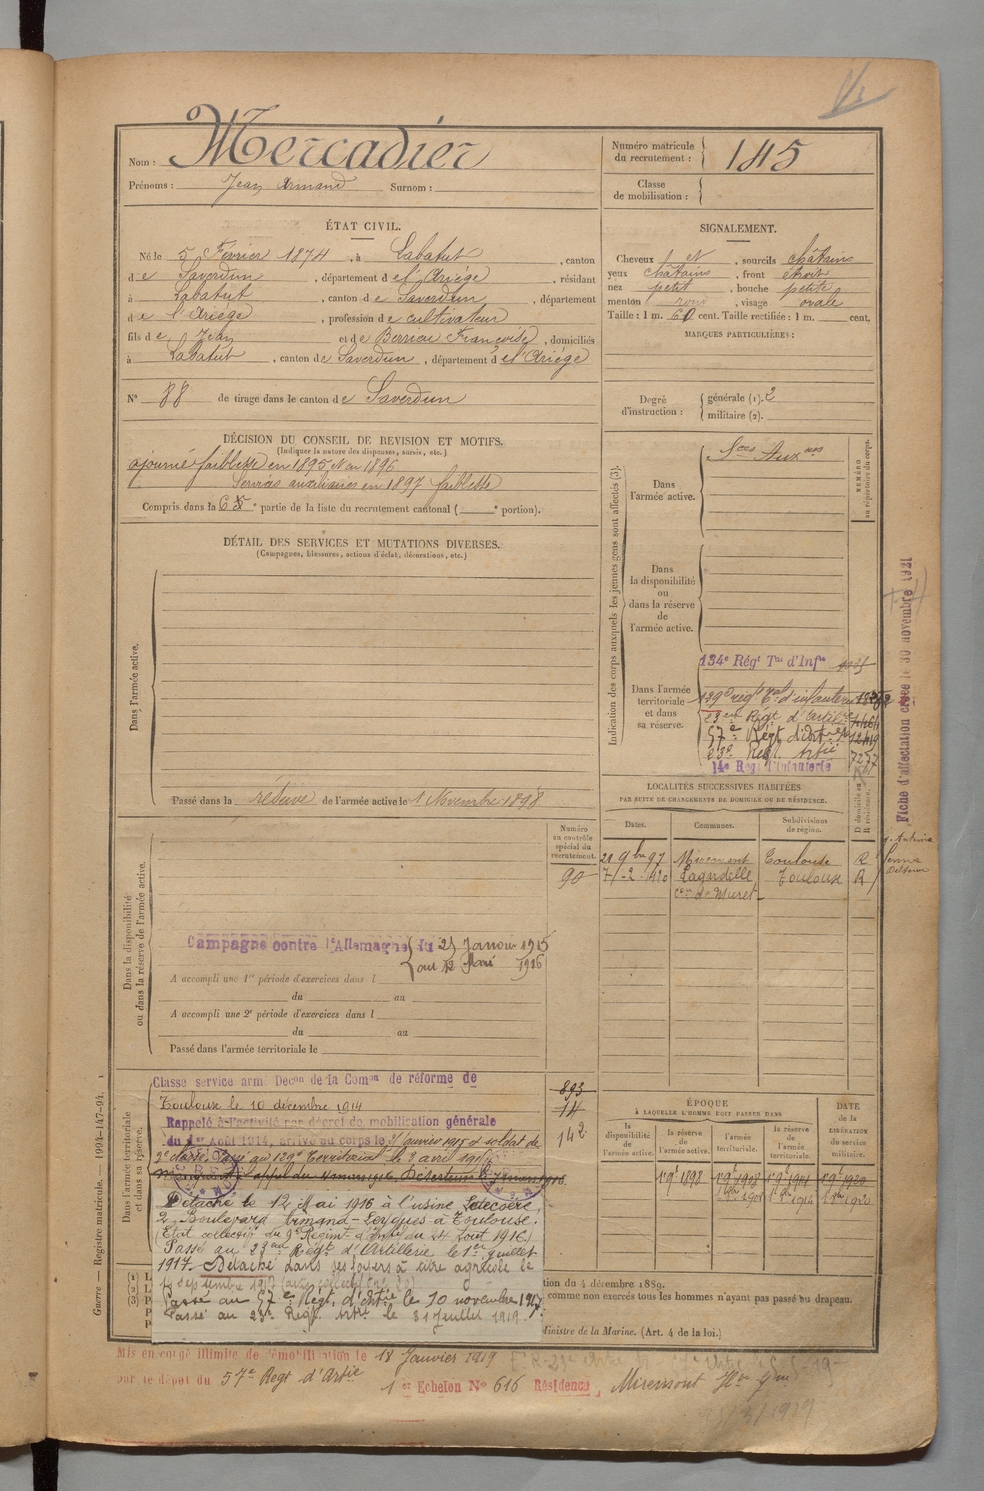 Nom : Mercadier
Prénoms : Jean Armand Surnom :
Numéro matricule
du recrutement : 145
Classe
de mobilisation :
ÉTAT CIVIL.
Né le 5 Février 1874, à Labatut, canton
de Saverdun, département de l'Ariège, résidant
à Labatut, canton de Saverdun, département
de l'Ariège, profession de cultivateur
fils de Jean et de Berriau Françoise, domiciliés
à Labatut, canton de Saverdun, département de l'Ariège
N° 88 de tirage dans le canton de Saverdun
SIGNALEMENT.
Cheveux et, sourcils châtains
yeux châtains, front étroit
nez petit, bouche petite
menton rond, visage ovale
Taille : 1 m. 60 cent. Taille rectifiée : 1 m. cent.
MARQUES PARTICULIÈRES :
Degré
d'instruction :
générale (1). 2
militaire (2).
DÉCISION DU CONSEIL DE REVISION ET MOTIFS.
(Indiquer la nature des dispenses, sursis, etc.)
ajourné faiblesse en 1895 et en 1896
Services auxiliaires en 1897 faiblesse
Compris dans la 6e partie de la liste du recrutement cantonal ( e portion).
DÉTAIL DES SERVICES ET MUTATIONS DIVERSES.
(Campagnes, blessures, actions d'éclat, décorations, etc.)
Dans l'armée active.
Passé dans la réserve de l'armée active le 1 Novembre 1898
Indication des corps auxquels les jeunes gens sont affectés (3).
NUMÉRO
au répertoire du corps.
Dans
l'armée active.
Sces Auxres
Dans
la disponibilité
ou
dans la réserve
de
l'armée active.
Dans l'armée
territoriale
et dans
sa réserve.
134e Régt Tal d'Infie
139e régt Tal d'infanterie
23eme Régt d'artillerie
57e Régt d'artie
23e Régt Artie 7277
14e Régt d'Infanterie
Fiche d'affectation créée le 30 novembre 1921
LOCALITÉS SUCCESSIVES HABITÉES
PAR SUITE DE CHANGEMENTS DE DOMICILE OU DE RÉSIDENCE.
Dates. Communes. Subdivisions
de région.
D domicile ou
R résidence.
21 9bre 97 Miremont Toulouse R
7-2-1920 Lagardelle Toulouse R
con de Muret
Numéro
au contrôle
spécial du
recrutement.
90
Dans la disponibilité
ou dans la réserve de l'armée active.
Campagne contre l'Allemagne du 25 Janvier 1915
au 12 Mai 1916
A accompli une 1re période d'exercices dans l
du au
A accompli une 2e période d'exercices dans l
du au
Passé dans l'armée territoriale le
Dans l'armée territoriale
et dans sa réserve.
Classé service armé Decon de la Comon de réforme de
Toulouse le 10 décembre 1914
Rappelé à l'activité par décret de mobilisation générale
du 1er Août 1914, arrivé au corps le Janvier 1915 et soldat de
2e classe. Passé au 139e Territorial le 8 avril 1915
893
14
142
Détaché le 12 Mai 1916 à l'usine Lecère,
2, Boulevard Armand-Leygues à Toulouse.
(Etat collectif du 9e Régimt d'Infie du 24 Août 1916)
Passé au 23eme Régt d'Artillerie le 1er Juillet
1917. Détaché dans ses foyers à titre agricole le
14 septembre 1917
Passé au 57e Régt d'Artie le 10 novembre 1917.
Passé au 23e Régt Artie le 31 Juillet 1919.
ÉPOQUE
À LAQUELLE L'HOMME DOIT PASSER DANS
la
disponibilité
de
l'armée active.
la
réserve de
l'armée active.
l'armée
territoriale.
la
réserve de
l'armée
territoriale.
DATE
de la
LIBÉRATION
du service
militaire.
1er 9bre 1898
tion du 4 décembre 1889.
comme non exercés tous les hommes n'ayant pas passé au drapeau.
Ministre de la Marine. (Art. 4 de la loi.)
Guerre. — Registre matricule. — 1994-147-94.
Mis en congé illimité de démobilisation le 18 Janvier 1919
par le dépôt du 57e Regt d'Artie
1er Echelon N° 616 Résidence, Miremont Hte Gne